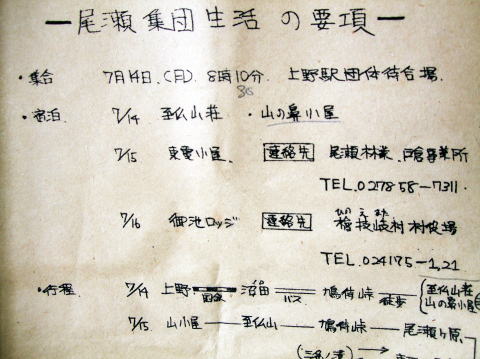 ー尾瀬集団生活の要項ー
・集合 7月14日.(月). 8時10分. 上野駅団体待合場.
30
・宿泊. 7/14 至仏山荘 ・山の鼻小屋
7/15 東電小屋. 連絡先 尾瀬林業.戸倉営業所
TEL.027858-7311.
7/16 御池ロッジ 連絡先 檜枝岐村村役場
ひのえまた
TEL.024175-
・行程. 7/14 上野 国鉄 沼田 バス 鳩待峠 徒歩 (至仏山荘
山の鼻小屋
7/15. 山小屋 ー 至仏山 ー 鳩待峠 ー 尾瀬ヶ原.